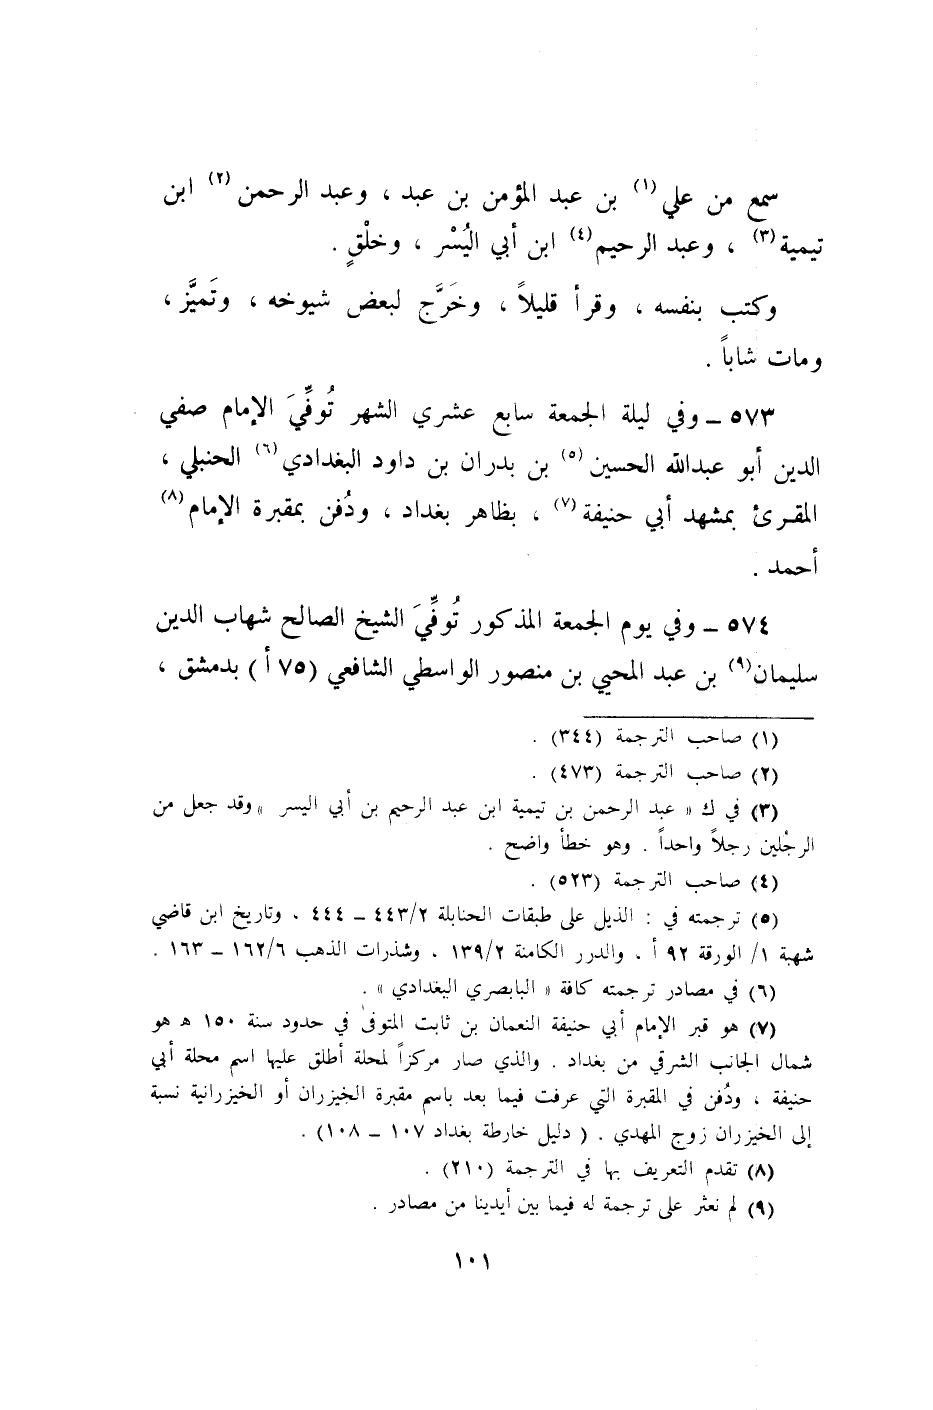 سمع من علي(١) بن عبد المؤمن بن عبد ، وعبد الرحمن(٢) ابن
تيمية(٣) ، وعبد الرحيم(٤) ابن أبي اليُسْر ، وخلْقٍ .
وكتب بنفسه ، وقرأ قليلاً ، وخَرَّج لبعض شيوخه ، وتَميَّز ،
ومات شاباً .
٥٧٣ ــ وفي ليلة الجمعة سابع عشري الشهر تُوفِّيَ الإمام صفي
الدين أبو عبدالله الحسين(٥) بن بدران بن داود البغدادي(٦) الحنبلي ،
المقرئ بمشهد أبي حنيفة(٧) ، بظاهر بغداد ، ودُفن بمقبرة الإمام(٨)
أحمد .
٥٧٤ ــ وفي يوم الجمعة المذكور تُوفِّيَ الشيخ الصالح شهاب الدين
سليمان(٩) بن عبد المحيي بن منصور الواسطي الشافعي (٧٥ أ) بدمشق ،
(١) صاحب الترجمة (٣٤٤) .
(٢) صاحب الترجمة (٤٧٣) .
(٣) في ك « عبد الرحمن بن تيمية ابن عبد الرحيم بن أبي اليسر » وقد جعل من
الرجْلين رجلاً واحداً . وهو خطأ واضح .
(٤) صاحب الترجمة (٥٢٣) .
(٥) ترجمته في : الذيل على طبقات الحنابلة ٤٤٣/٢ ــ ٤٤٤ ، وتاريخ ابن قاضي
شهبة ١/ الورقة ٩٢ أ ، والدرر الكامنة ١٣٩/٢ ، وشذرات الذهب ١٦٢/٦ ــ ١٦٣ .
(٦) في مصادر ترجمته كافة « البابصري البغدادي » .
(٧) هو قبر الإمام أبي حنيفة النعمان بن ثابت المتوفى في حدود سنة ١٥٠ هـ هو
شمال الجانب الشرقي من بغداد . والذي صار مركزاً لمحلة أطلق عليها اسم محلة أبي
حنيفة ، ودُفن في المقبرة التي عرفت فيما بعد باسم مقبرة الخيزران أو الخيزرانية نسبة
إلى الخيزران زوج المهدي . ( دليل خارطة بغداد ١٠٧ ــ ١٠٨) .
(٨) تقدم التعريف بها في الترجمة (٢١٠) .
(٩) لم نعثر على ترجمة له فيما بين أيدينا من مصادر .
١٠١